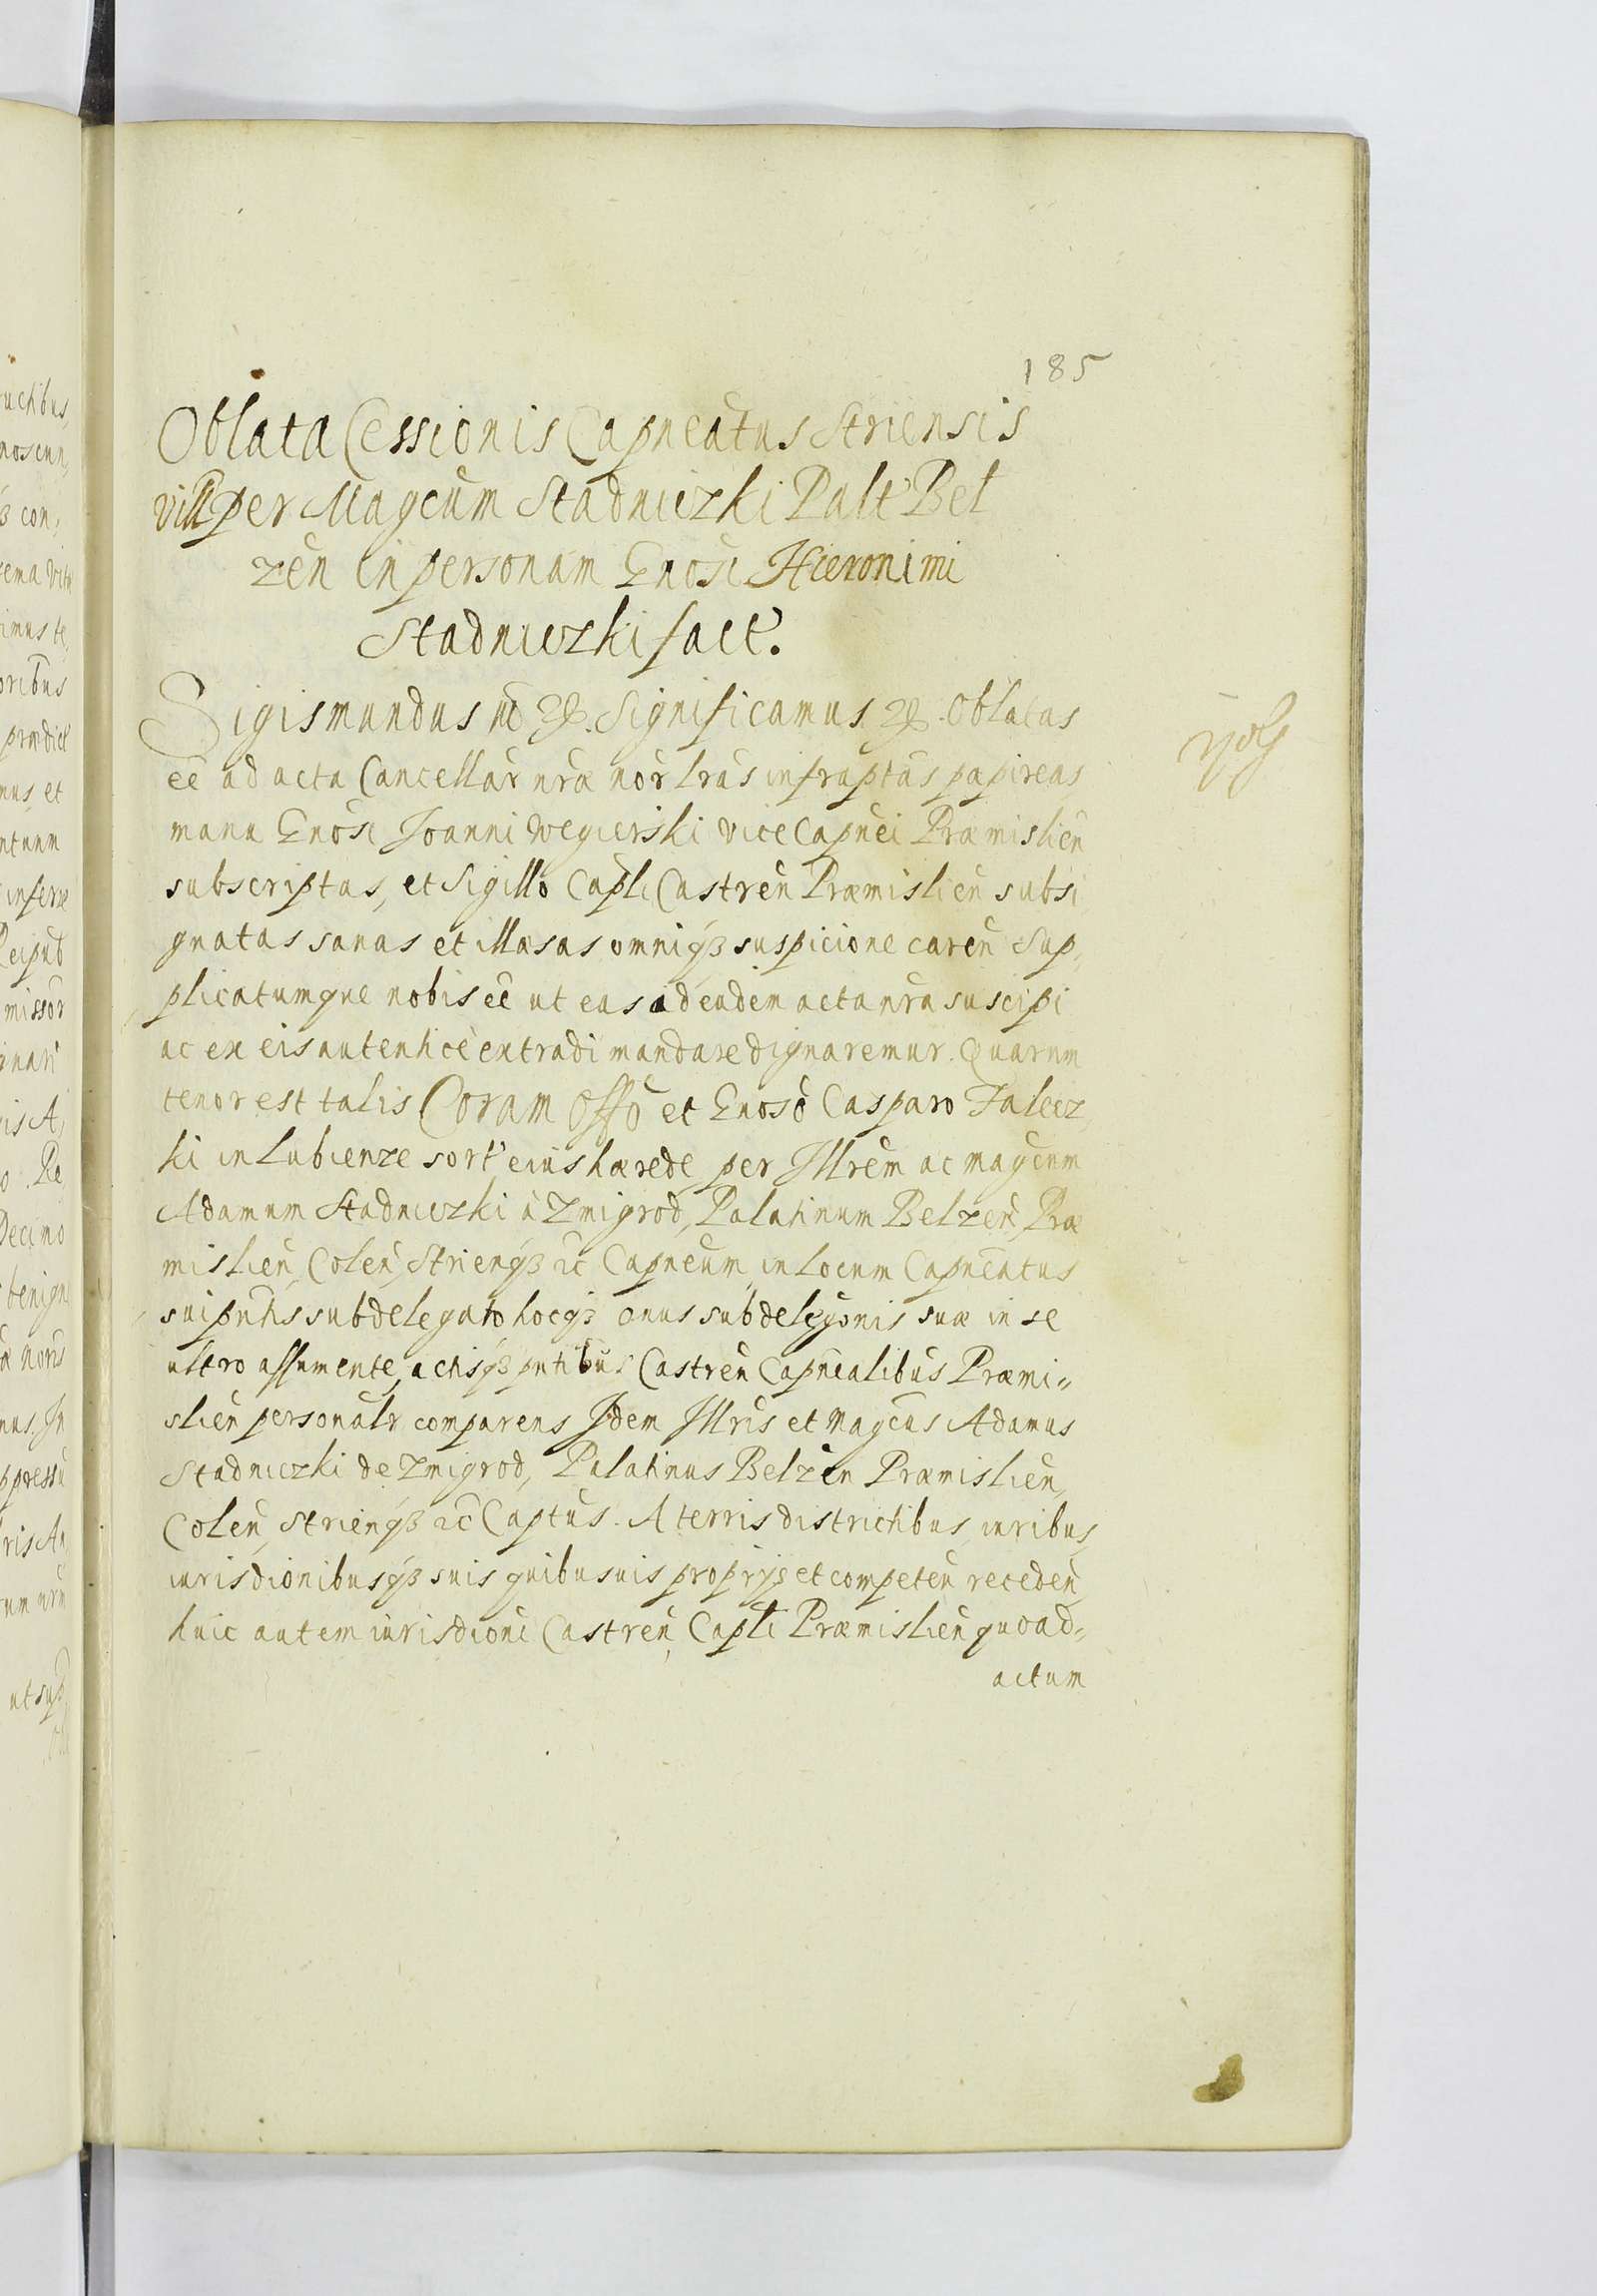 185
Oblata Cessionis Capneatus Striensis
vill per Magcum Stadniczki Palt Bel
zen in personam Gnosi Hieronimi
Stadniczki fact.
Sigismundus III etc. Significamus etc. Oblatas
ee ad acta Cancellar nræ nor lras infraptas papireas
manu Gnosi Joanni Wegierski vice Capnei Præmislien
subscriptas, et Sigillo Capli Castren Præmislien subsi
gnatas sanas et illæsas omniqз suspicione caren Sup,
plicatumque nobis ee ut eas ad eadem acta nra suscipi
ac ex eis autentice extradi mandare dignaremur. Quarum
tenor est talis Coram Offo et Gnoso Casparo Faleez
ki in Lubienze sort eius hærede per Illrem ac magcum
Adamum Stadniczki a Zmigrod, Palatinum Belzen, Præ
mislien, Colen, Strienqз ic Capneum in locum Capneatus
sui pntis subdelegato hocqз onus subdelegonis suæ in se
ultro assumente, actisqз pntibus Castren Capnealibus Præmi-
slien personalr comparens Idem Illris et Magcus Adamus
Stadniczki de Zmigrod, Palatinus Belzen Præmislien,
Colen, Strienqз ic Captus. A terris districtibus, iuribus,
iurisdionibusqз suis quibusuis proprijs et competen receden,
huic autem iurisdioni Castren Capli Præmislien quoad-
actum
uctibus,
noscun,
з con,
imus te,
oribus
prædict
nus, et
ntunm
inserre
missor
is A,
Decimo
benign
æ noris
nus. In
ppressu
ris An